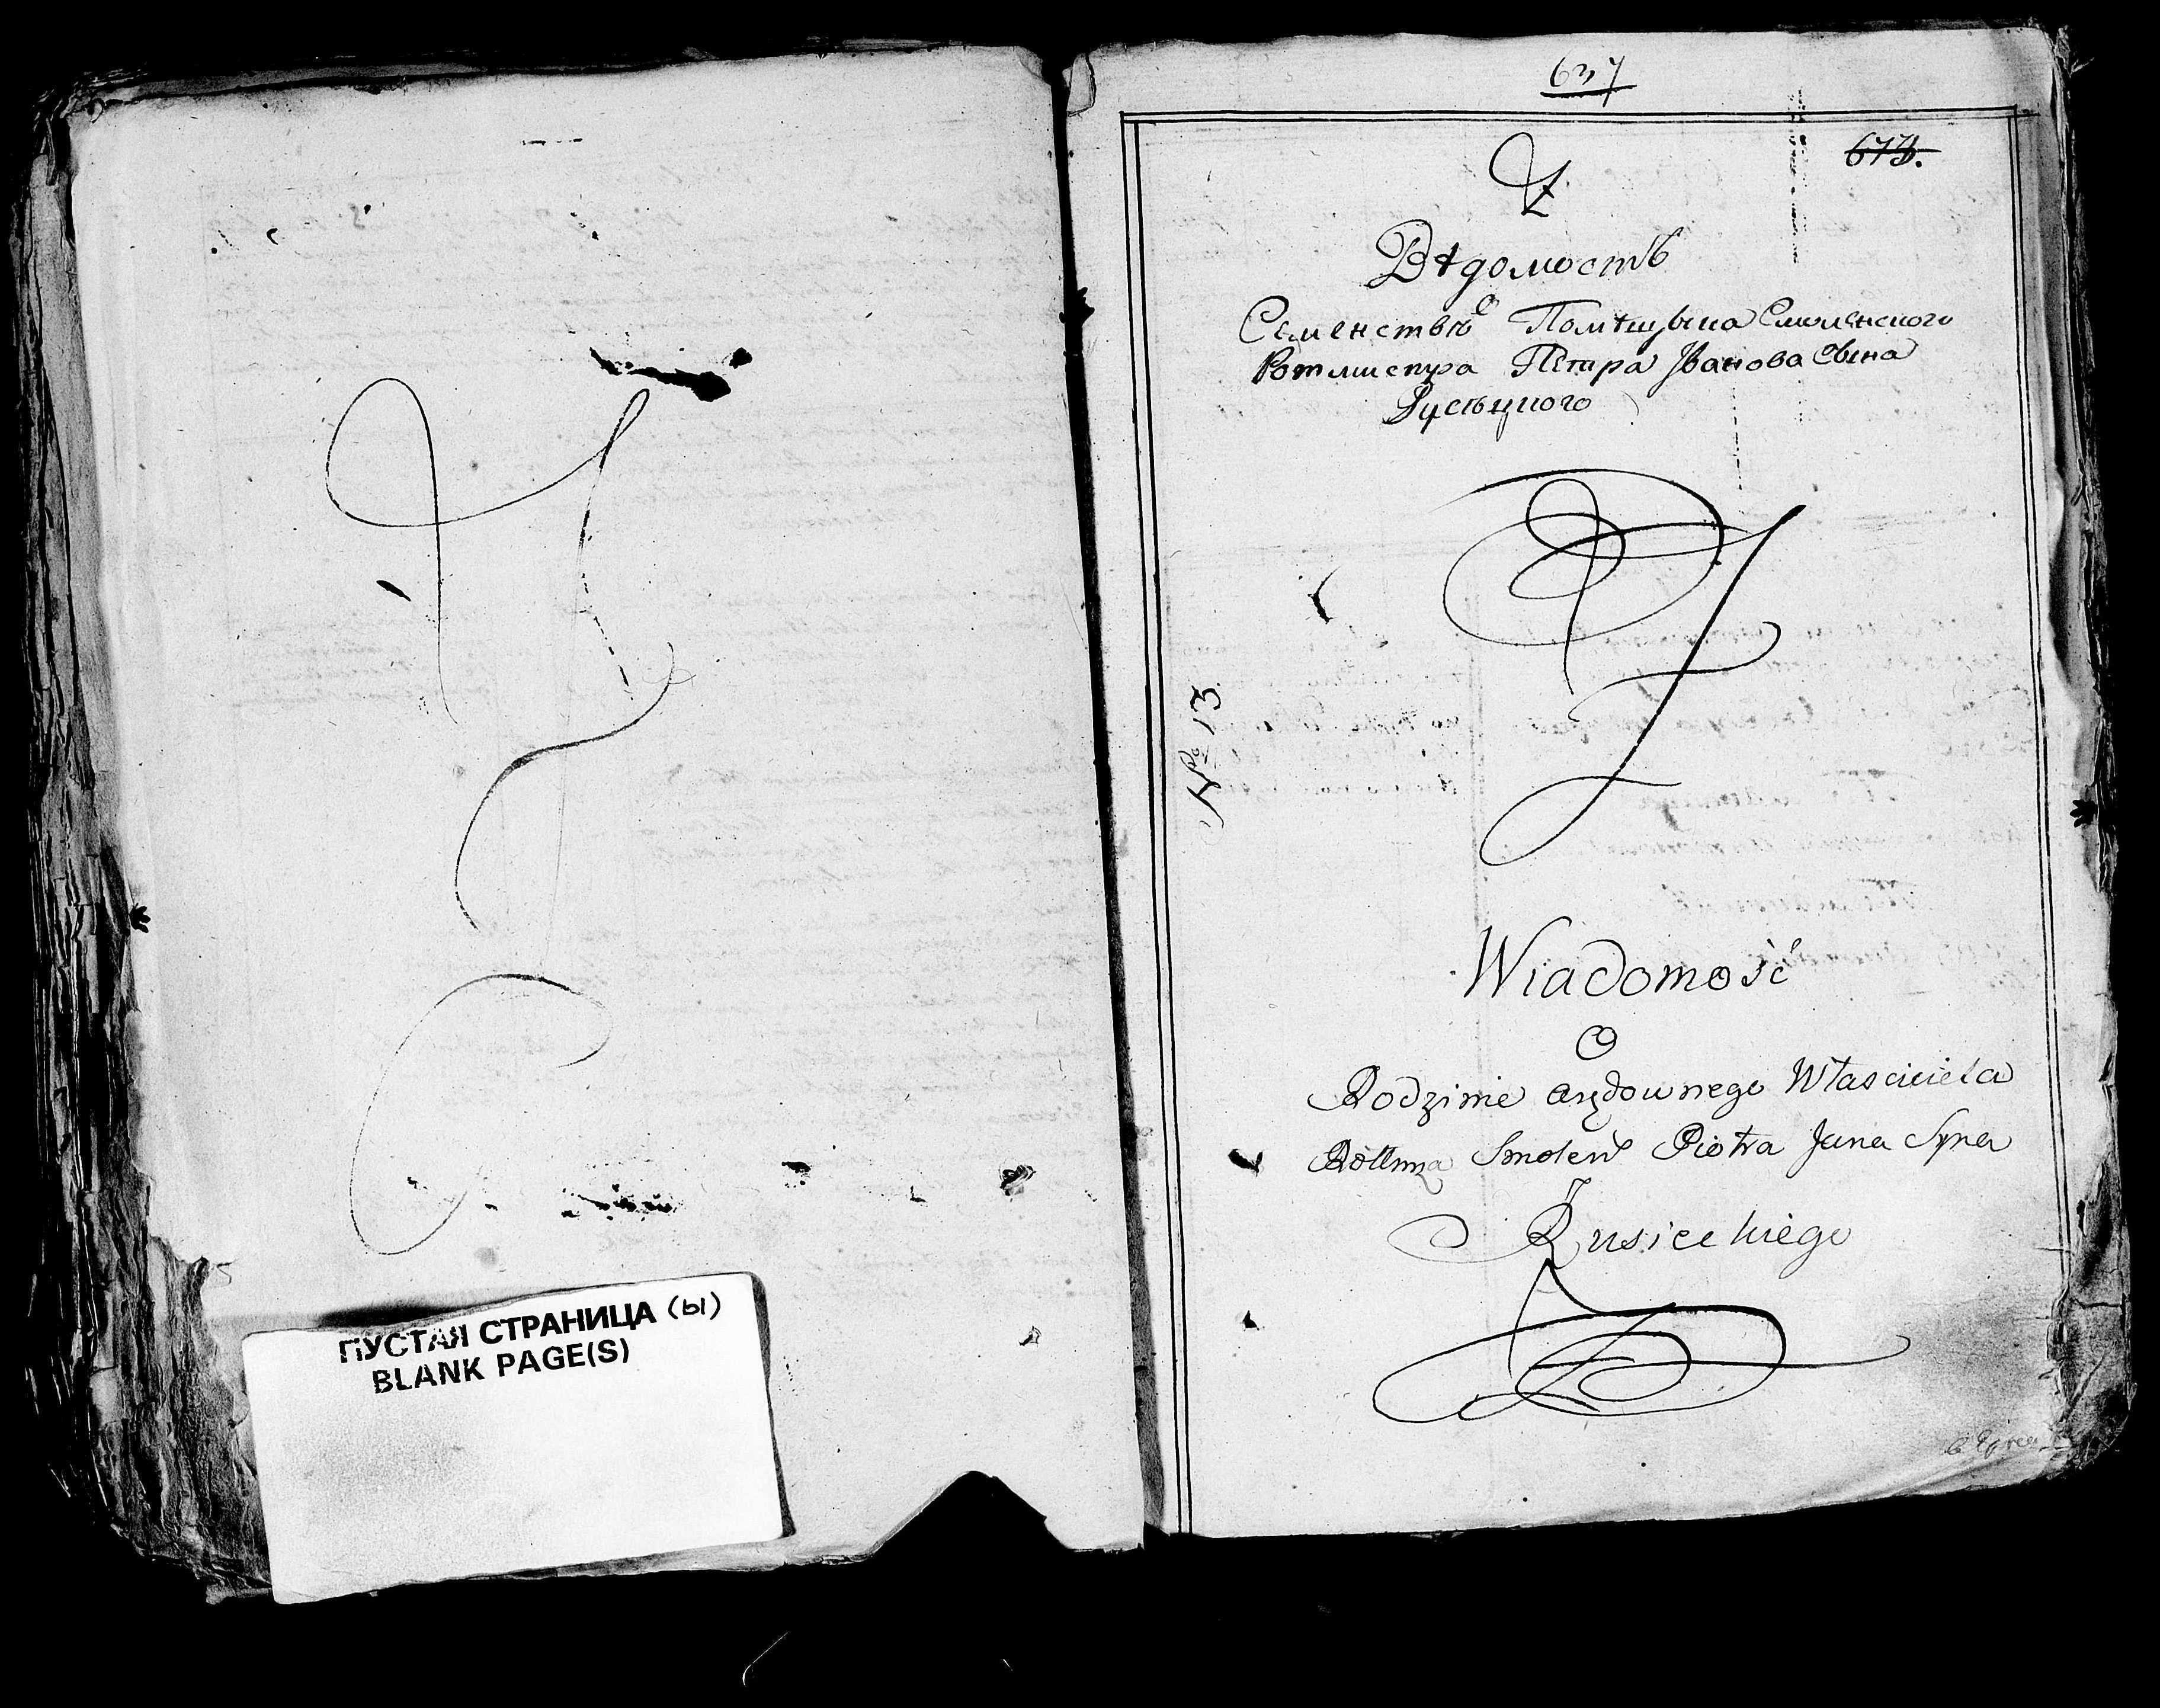 ПУСТАЯ СТРАНИЦА (ы)
BLANK PAGE(S)
637
673.
Вѣдомость
О
Семенствѣ Помѣщыка Смоленского
Ротмистра Петра Иванова Сына
Русѣцкого
№ 13.
Wiadomość
O
Rodzinie Właściciela
Rottmza Smolen Piotra Jana Syna
Rusieckiego